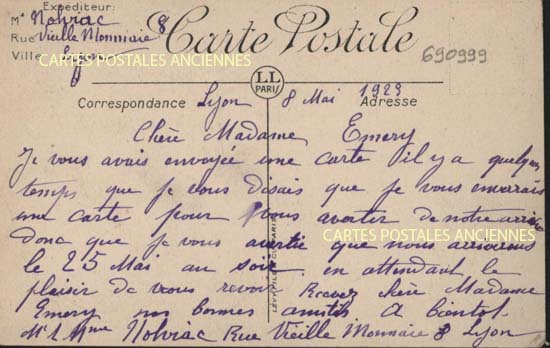 Expéditeur:
Mr Nolviac
Rue Vieille Monnaie 8
Ville Lyon
Carte Postale
690999
CARTES POSTALES ANCIENNES
LL
PARIS
Correspondance
Adresse
Lyon 8 Mai 1923
Chère Madame Emery
Je vous avais envoyée une carte il y a quelque
temps que je vous disais que je vous enverrais
une carte pour vous avertir de notre arrivée
donc que je vous avertie que nous arriverons
CARTES POSTALES ANCIENNES
le 25 Mai au soir en attendant le
plaisir de vous revoir Recevez chère Madame
Emery nos bonnes amitiés A bientot
Mr & Mme Nolviac Rue Vieille Monnaie 8 Lyon